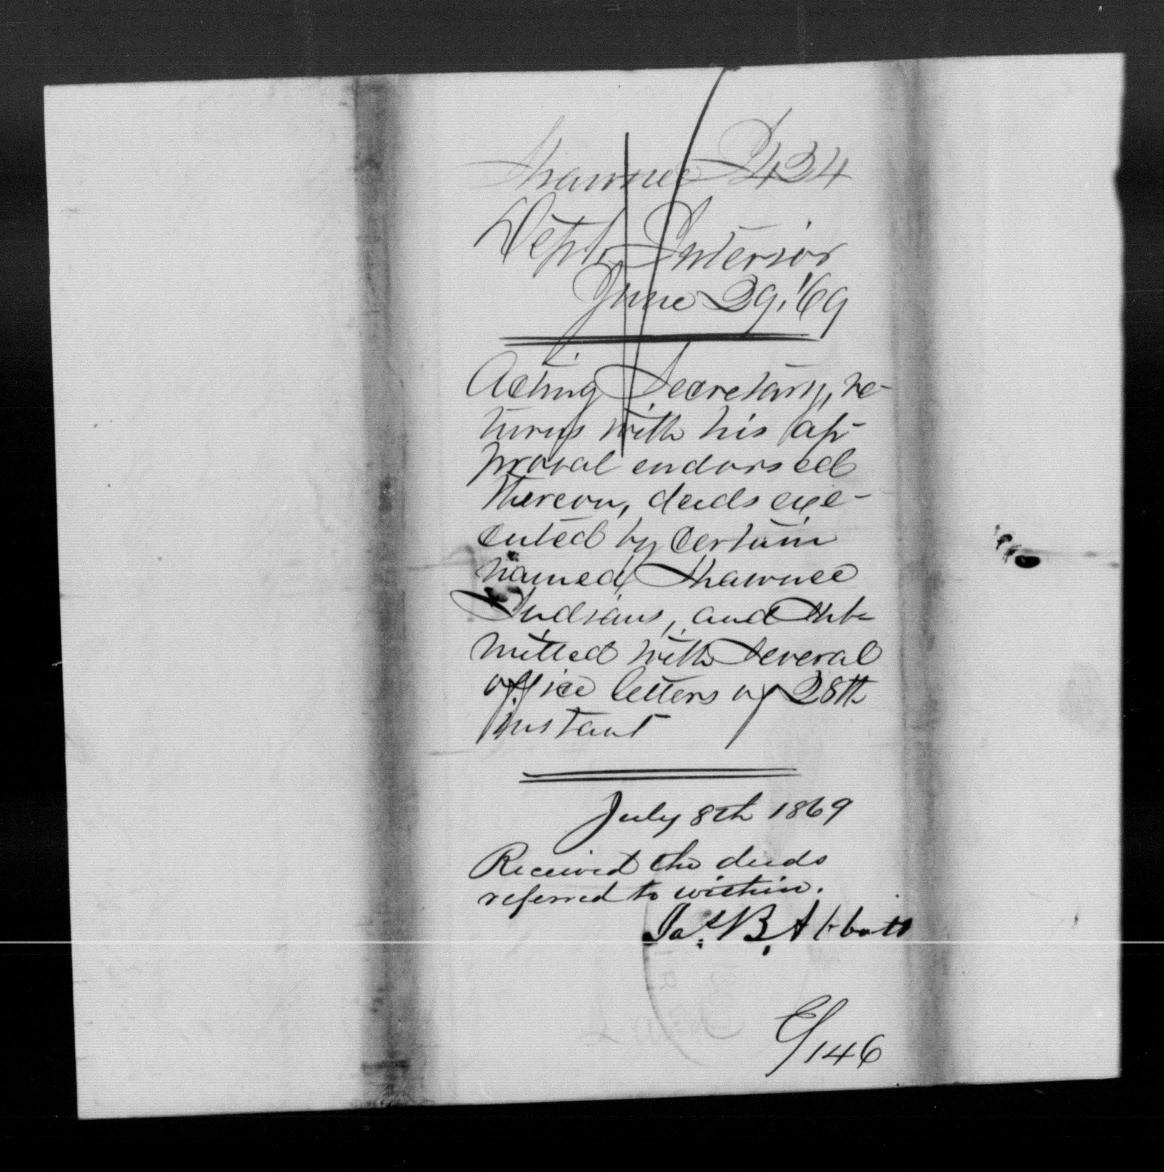 Shawnee I 434
Dept. Interior
June 29, '69
Acting Secretary, re-
turns with his ap-
proval endorsed
thereon, deeds exe-
cuted by certain
named Shawnee
Indians, and sub-
mitted with several
office letters of 28th
instant
July 8th 1869
Received the deeds
referred to within.
Jas. B. Abbott
146